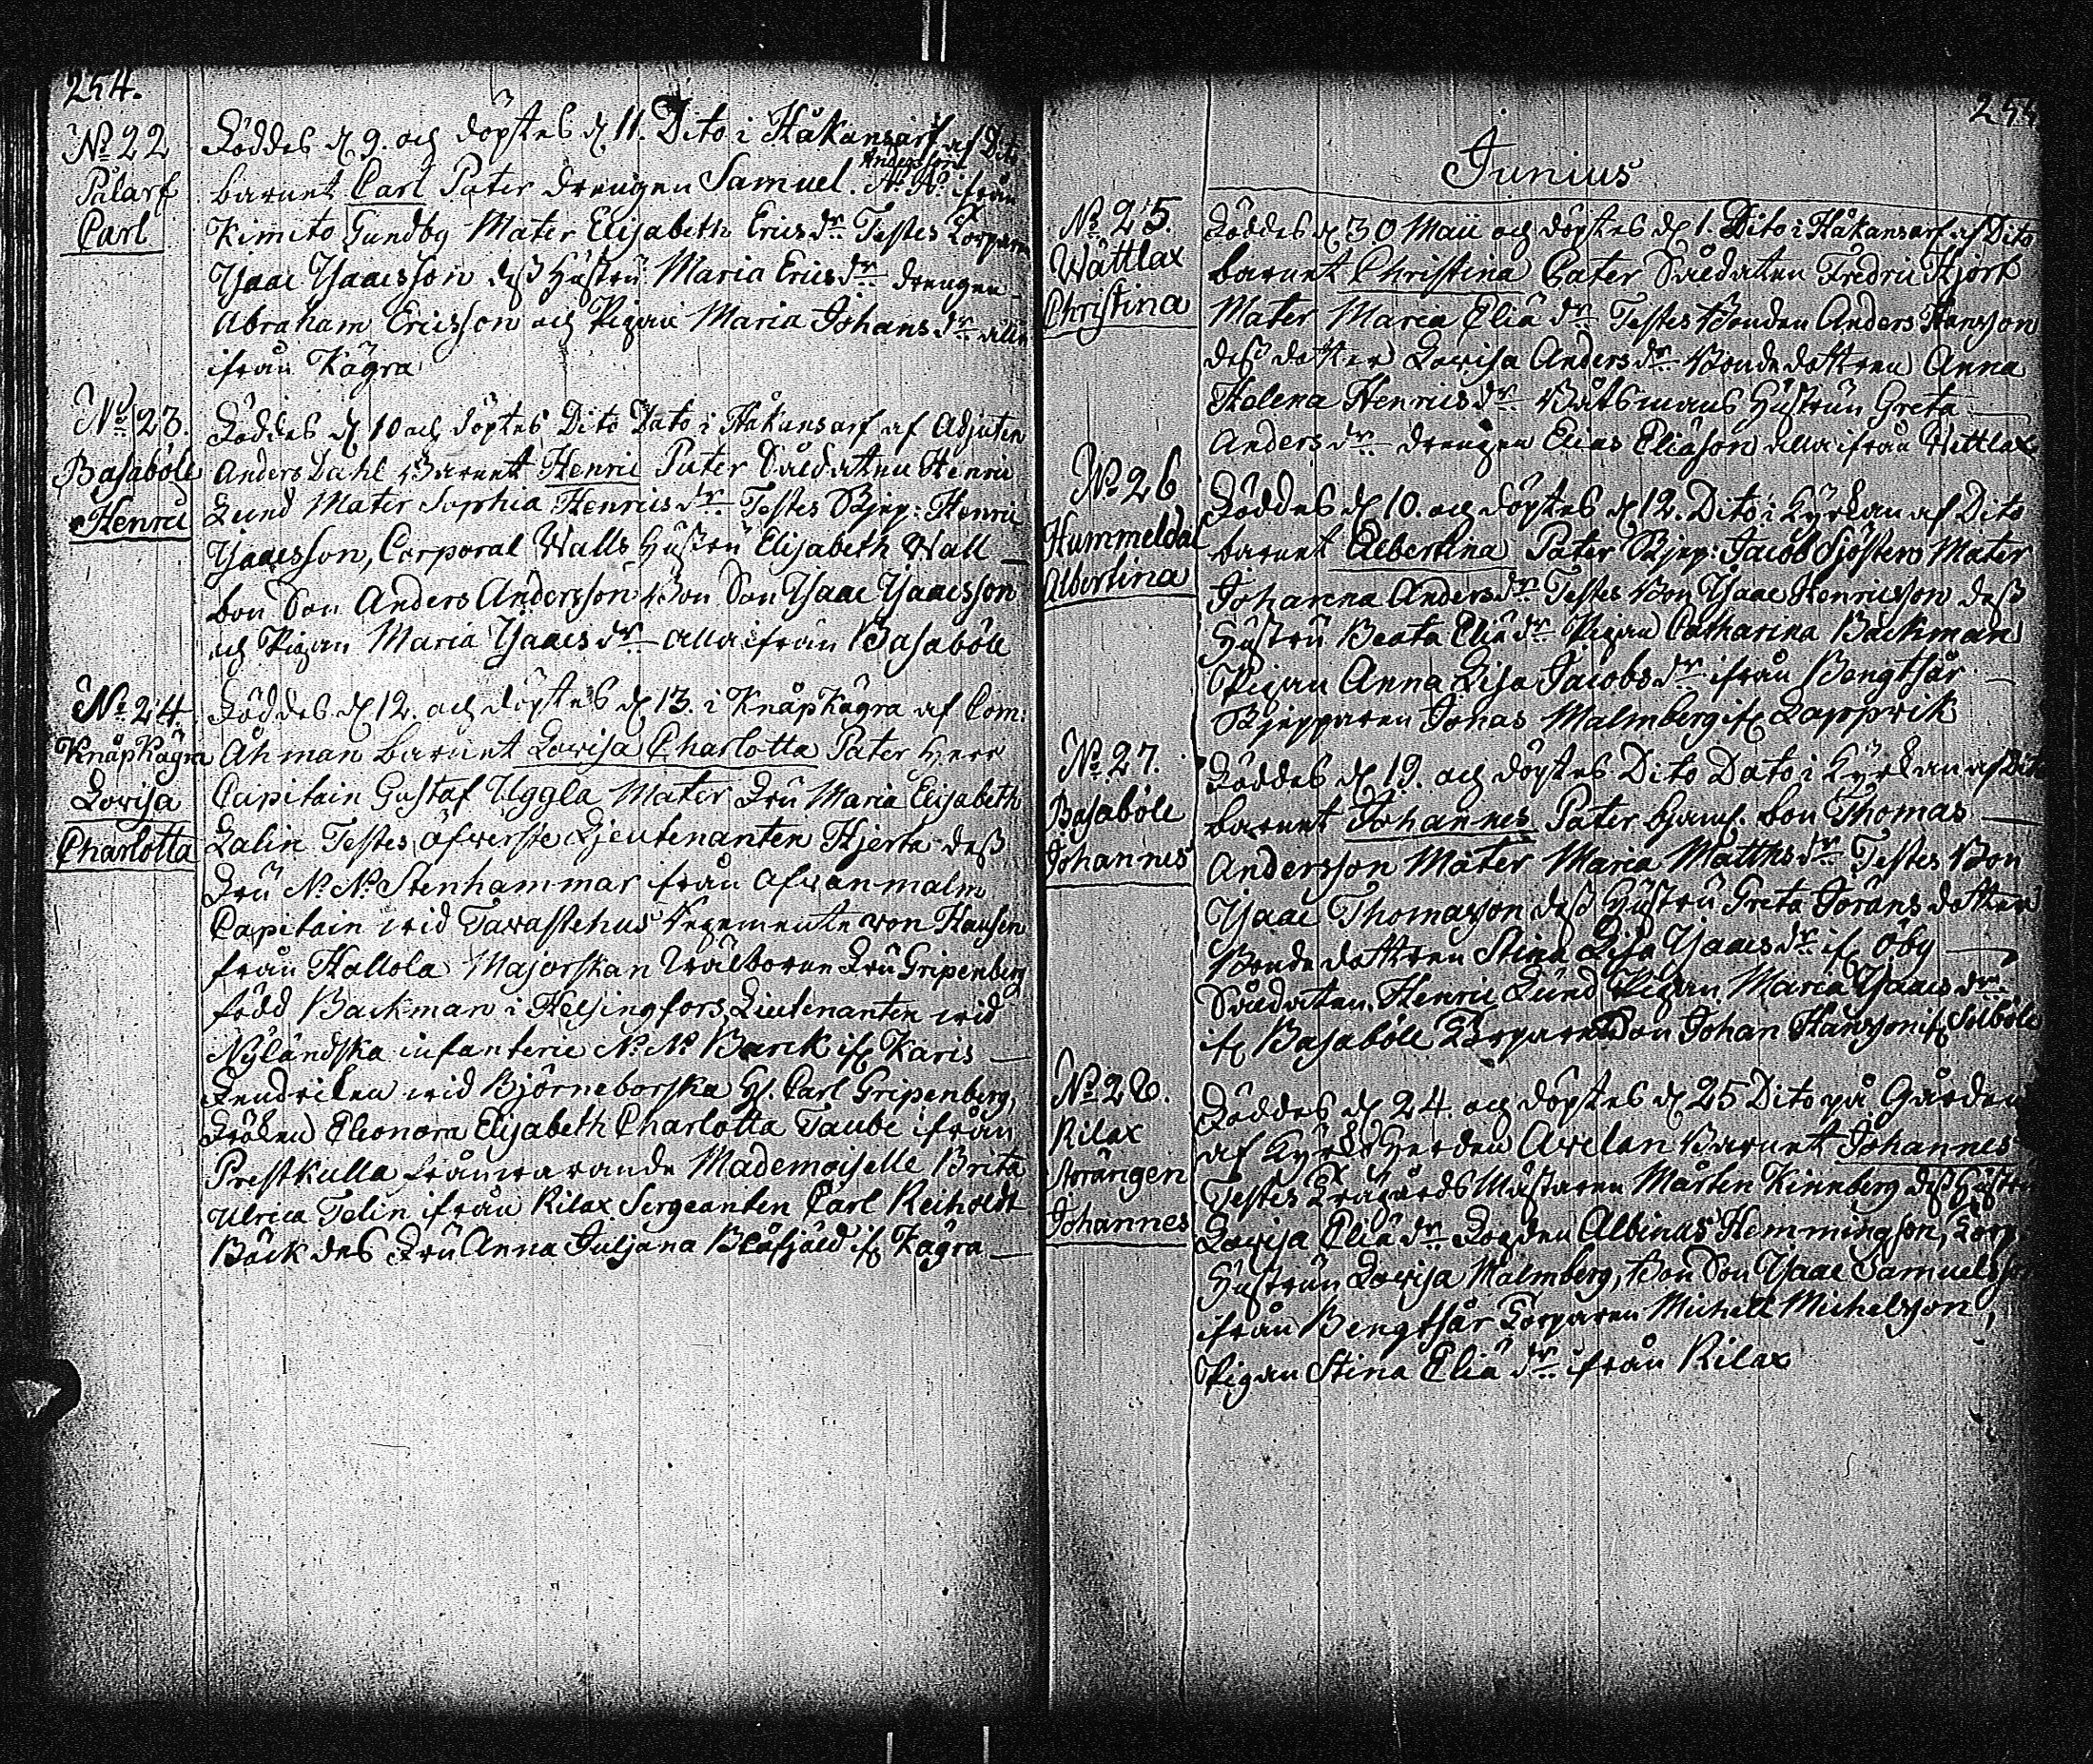 254.
No 22
Pålarf
Carl
Föddes d. 9. och döptes d. 11. Dito i Håkansarf af Dito
Andersson
barnet Carl Pater Drengen Samuel. N. N. ifrån
Kimito Gundby Mater Elisabeth Ericsdr. Testes Torparen
Isaac Isaacsson dess Hustru Maria Ericsdr. Drengen
Abraham Ericsson och Pigan Maria Johansdr. alla
ifrån Kägra
No 23.
Basaböle
Henric
Föddes d. 10 och döptes Dito Dato i Håkansarf af Adjuten
Anders Dahl Barnet Henric Pater Såldaten Henric
Lund Mater Sophia Henricsdr. Testes Skjep: Henric
Isaacsson, Corporal Walls Hustru Elisabeth Wall
bon Son Anders Andersson Bon Son Isaac Isaacsson
och Pigan Maria Isaacsdr. alla ifrån Basaböle
No 24.
KnåpKägra
Lovisa
Charlotta
Föddes d. 12. och döptes d. 13. i KnåpKägra af Com:
Åhman barnet Lovisa Charlotta Pater Herr
Capitain Gustaf Uggla Mater Fru Maria Elisabeth
Testes öfwerste Ljeutenanten Hjerta dess
Fru N. N. Stenhammar ifrån
Capitain wid Tavastehus Regemente von Hausen
från Hollola Majorskan Wälborne Fru Gripenberg
född Backman i Helsingfors, Lieutenanten wid
Nyländska infanterie N. N. Barck if. Karis
Fendriken wid Björneborska Carl Gripenberg,
Fröken Eleonora Elisabeth Charlotta Taube ifrån
Prestkulla frånwarande Mademoiselle Brita
Ulrica Telin ifrån Rilax Sergeanten Carl Reiholdt
Böck des Fru Anna Juljana Blåfjäld if. Kägra
255
Junius
No 25.
Wättlax
Christina
Föddes d. 30 Maii och döptes d. 1. Dito i Håkansarf af Dito
barnet Christina Pater Såldaten Fredric Hjort
Mater Maria Eliä dr. Testes Bonden Anders Hansson
dess dotter Lovisa Andersdr. Bondedottren Anna
Helena Henricsdr. Båtsmans Hustrun Greta
Andersdr. Drengen Elias Eliäson alla ifrån Wettlax
No 26
Hummeldal
Albertina
Föddes d. 10. och döptes d. 12. Dito i Kyrkan af Dito
barnet Albertina Pater Skjep: Jacob Sjösteen Mater
Johanna Andersdr. Testes Bon Isaac Henricsson dess
Hustru Beata Eliädr. Pigan Catharina Backman
Pigan Anna Lisa Jacobsdr. ifrån Bengtsår
Skjepparen Jonas Malmberg if. Lappvik
No 27.
Basaböle
Johannes
Föddes d. 19. och döptes Dito Dato i Kyrkan af Dito
barnet Johannes Pater bon Thomas
Andersson Mater Maria Mattsdr. Testes Bon
Isaac Thomasson dess Hustru Greta Jöransdotter
Bonde dottren Stina Lisa Isaacsdr. if. Öby
Såldaten Henric Lund Pigan Maria Isaacsdr.
if. Basaböle Torpare Son Johan Hansson if. Solböle
No 28.
Rilax
Storängen
Johannes
Föddes d. 24. och döptes d. 25 Dito på Gården
af Kyrkoherden Avelan Barnet Johannes
Testes Trägårds Mästaren Mårten Kinnberg dess Hustru
Lovisa Eliädr. Fogden Albinus Hemmingson, Torp
Hustrun Lovisa Malmberg, Bon Son Isaac Samuelsson
ifrån Bengtsår Torparen Michell Michelsson,
Pigan Stina Eliä dr. ifrån Rilax